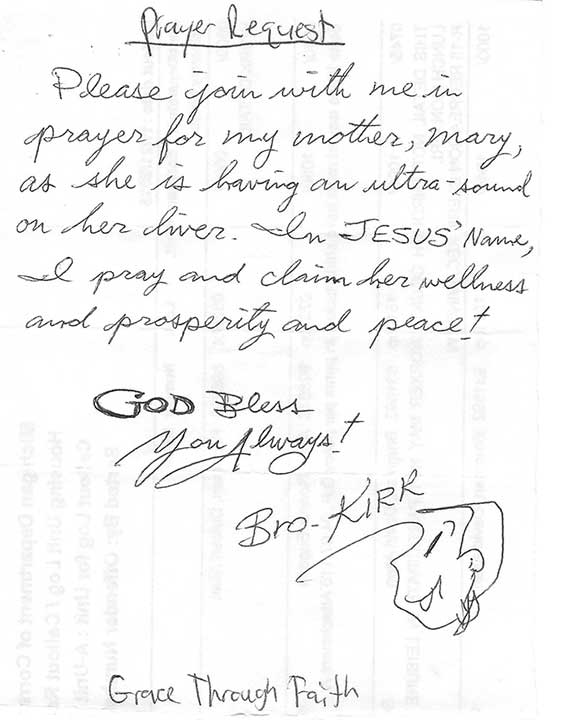 Prayer Request
Please join with me in
prayer for my mother, Mary,
as she is having an ultra-sound
on her liver. In JESUS' Name,
I pray and claim her wellness
and prosperity and peace!
GOD Bless
You Always!
Bro-KIRK
Grace Through Faith